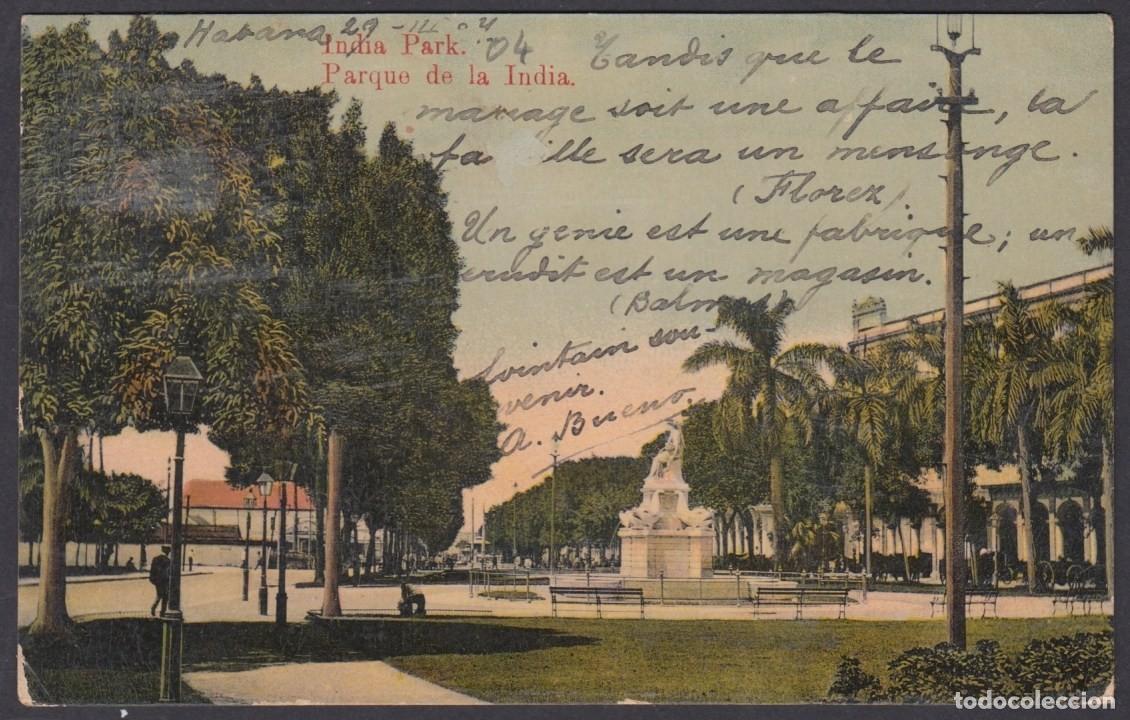 Habana, 29-III-04
India Park.
Parque de la India.
Tandis que le
mariage soit une affaire, la
famille sera un mensonge.
(Florez)
Un genie est une fabrique; un
erudit est un magasin.
(Balmes)
Lointain sou-
venir.
A. Bueno.
todocoleccion